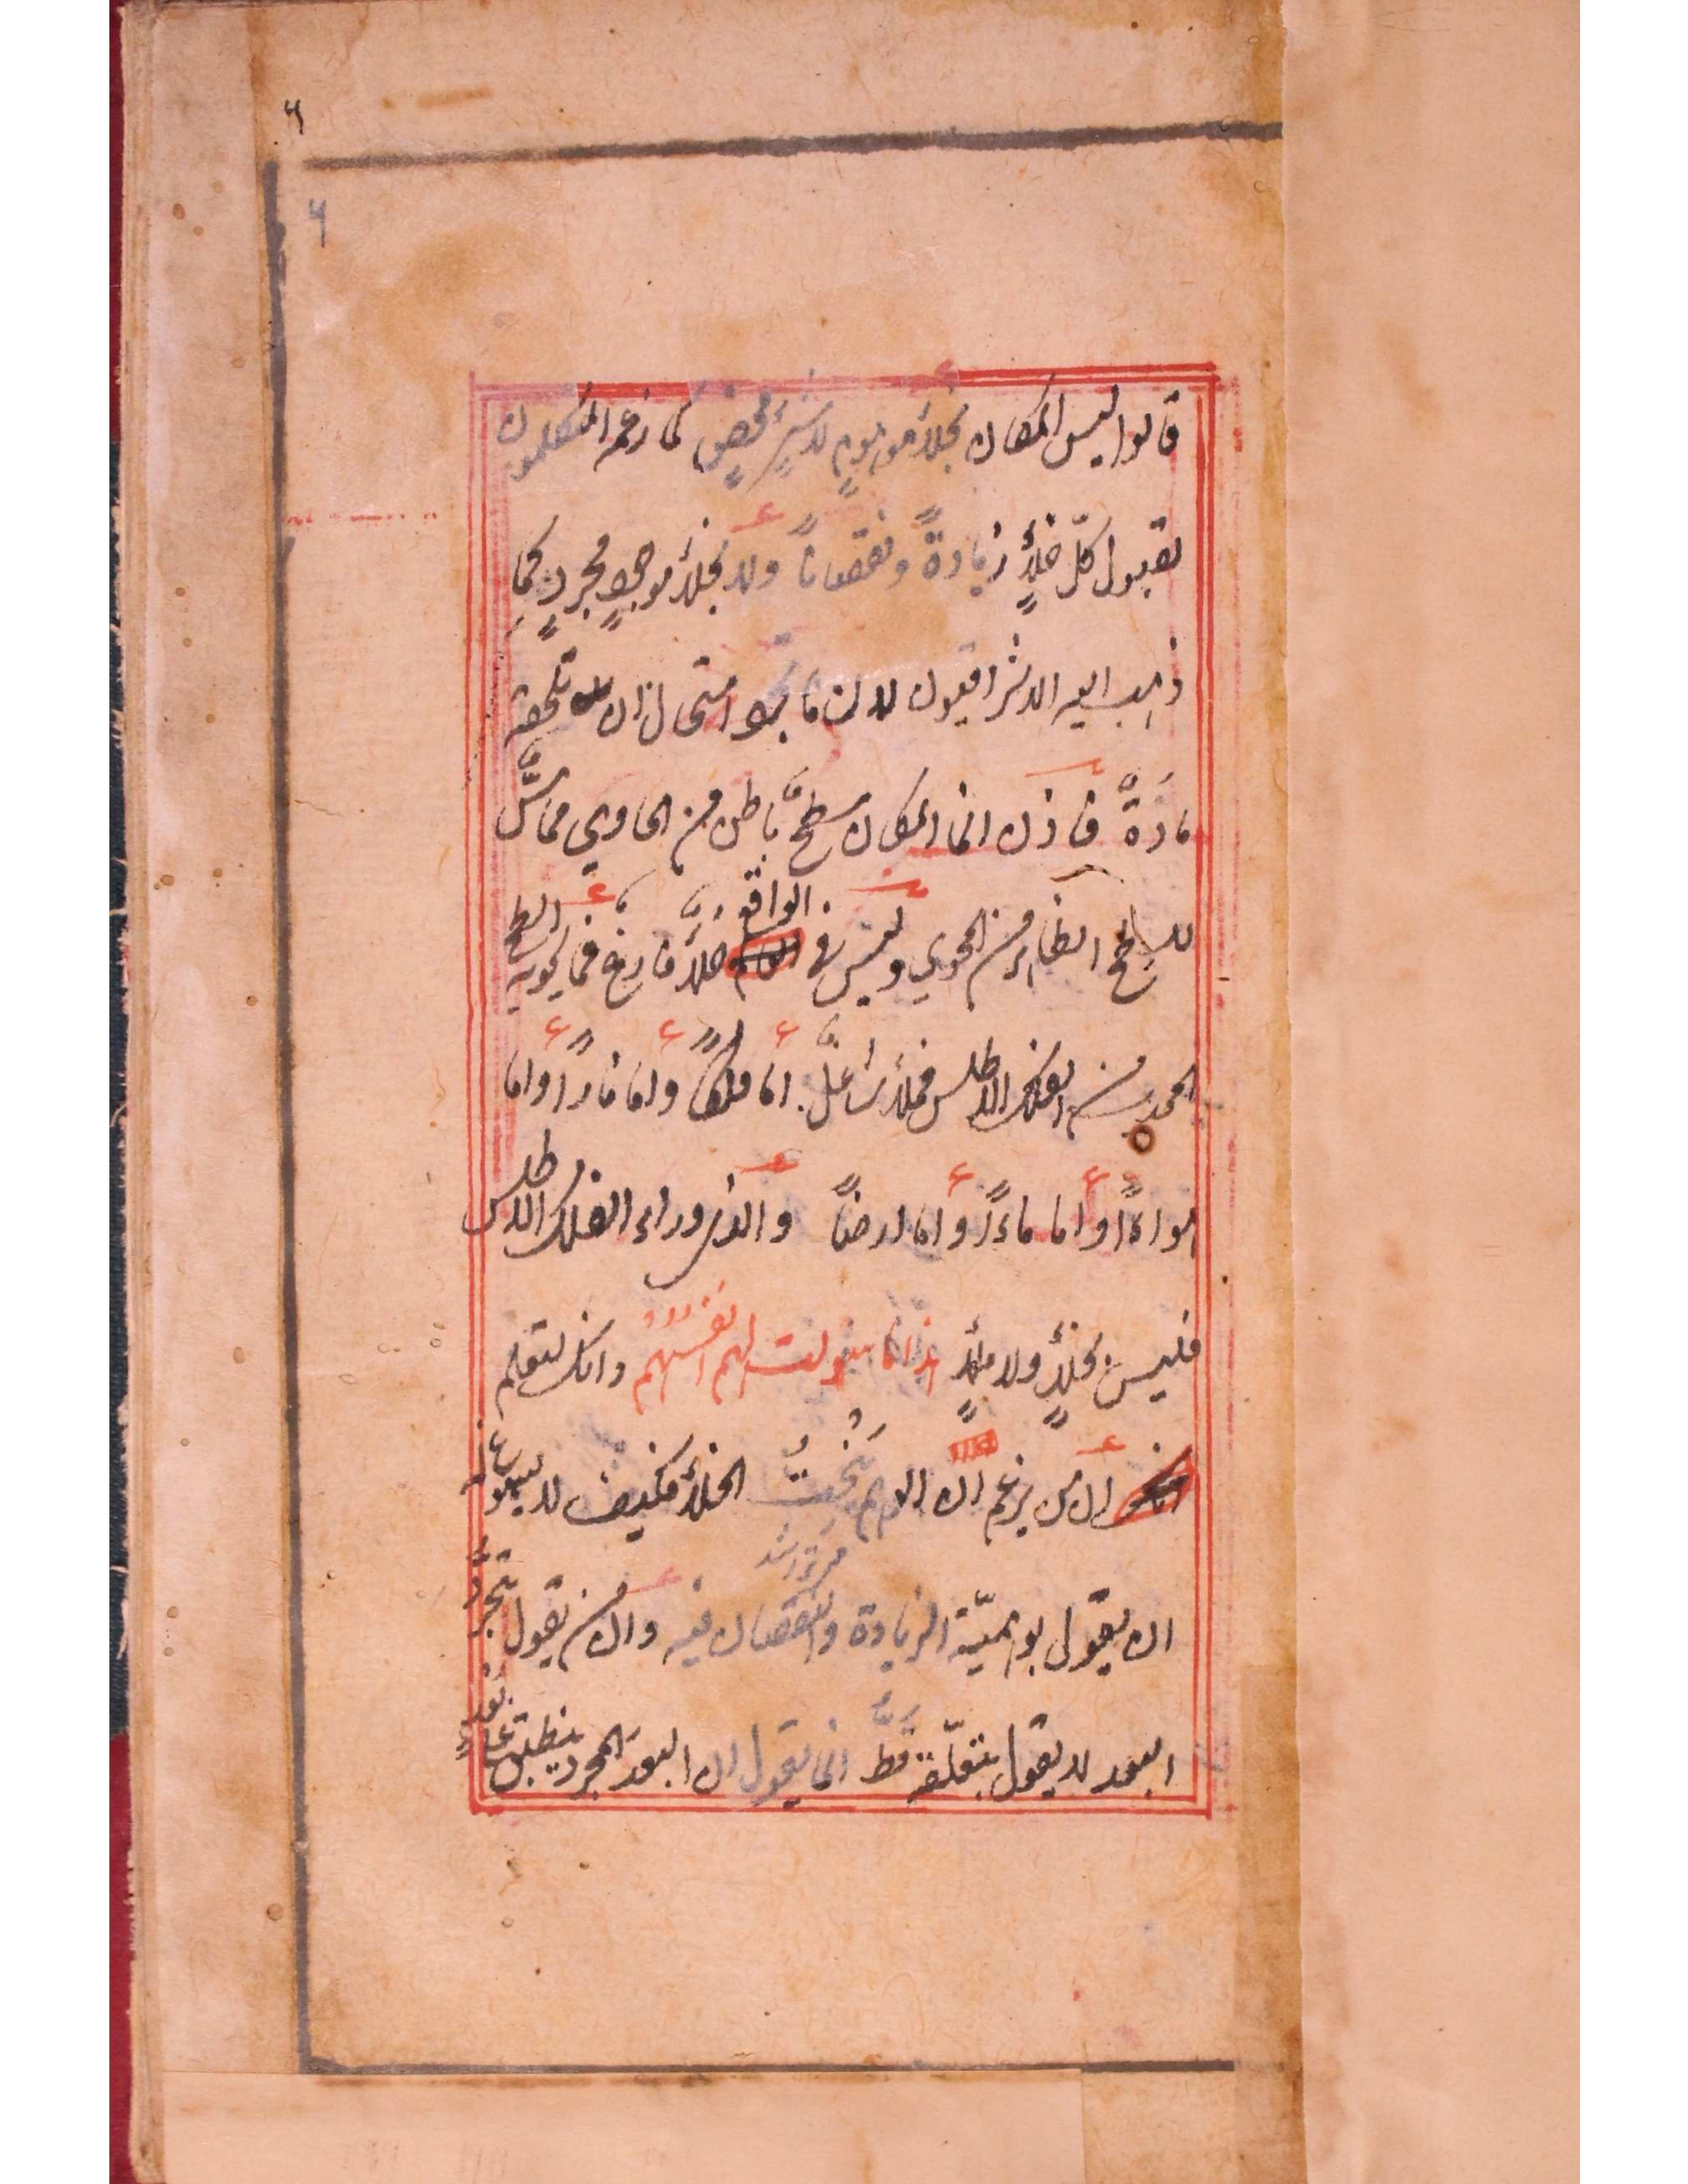 ۶
۶
قالوا ليس المكان بخلأٍ موهومٍ لاشئٍ محضٍ كما زعم المتكلمون
لقبول كلّ خلأٍ زيادةً ونقصاناً ولا بخلأٍ موجودٍ مجردٍ كما
ذهب اليه الاشراقيون لان ما تجرد استحال ان تلحقه
مادةٌ فاذن انما المكان سطحٌ باطن من الحاوي مماسٌّ
للسطح الظاهر من المحوي وليس في الواقع خلأٌ فارغ فما يحويه السطح
المحدب من الفلك الاطلس فملأٌ شاغلٌ اما فلكاً واما ناراً واما
هواءاً واما ماءاً واما ارضاً والذي وراء الفلك الاطلس
فليس بخلأٍ ولا ملأٍ هذا ما سولت لهم انفسهم وانك لتعلم
ان من يزعم ان الوهم ينحت الخلأ فكيف لا يسوغ له
ان يقول بوهميّة الزيادة والنقصان فيه وان من يقول بتجرّد
البعد لا يقول بتعلّقه قطّ انما يقول ان البعد المجرد ينطبق على بُعدٍ